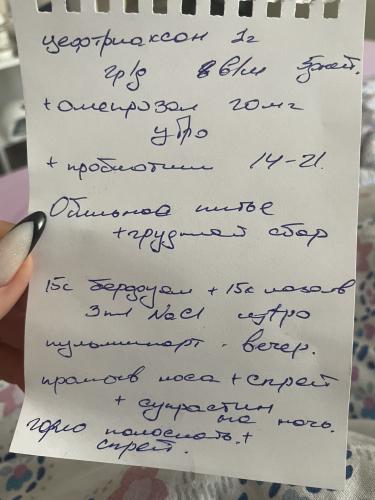 цефтриаксон 1г
2р/д в/м 5дней.
+ омепразол 20мг
утро
+ пробиотики 14-21.
Обильное питье
+ грудной сбор
15к беродуал + 15к лазолв
3мл NaCl утро
пульмикорт - вечер.
промыв носа + спрей
+ супрастин на ночь.
горло полоскать. +
спрей.